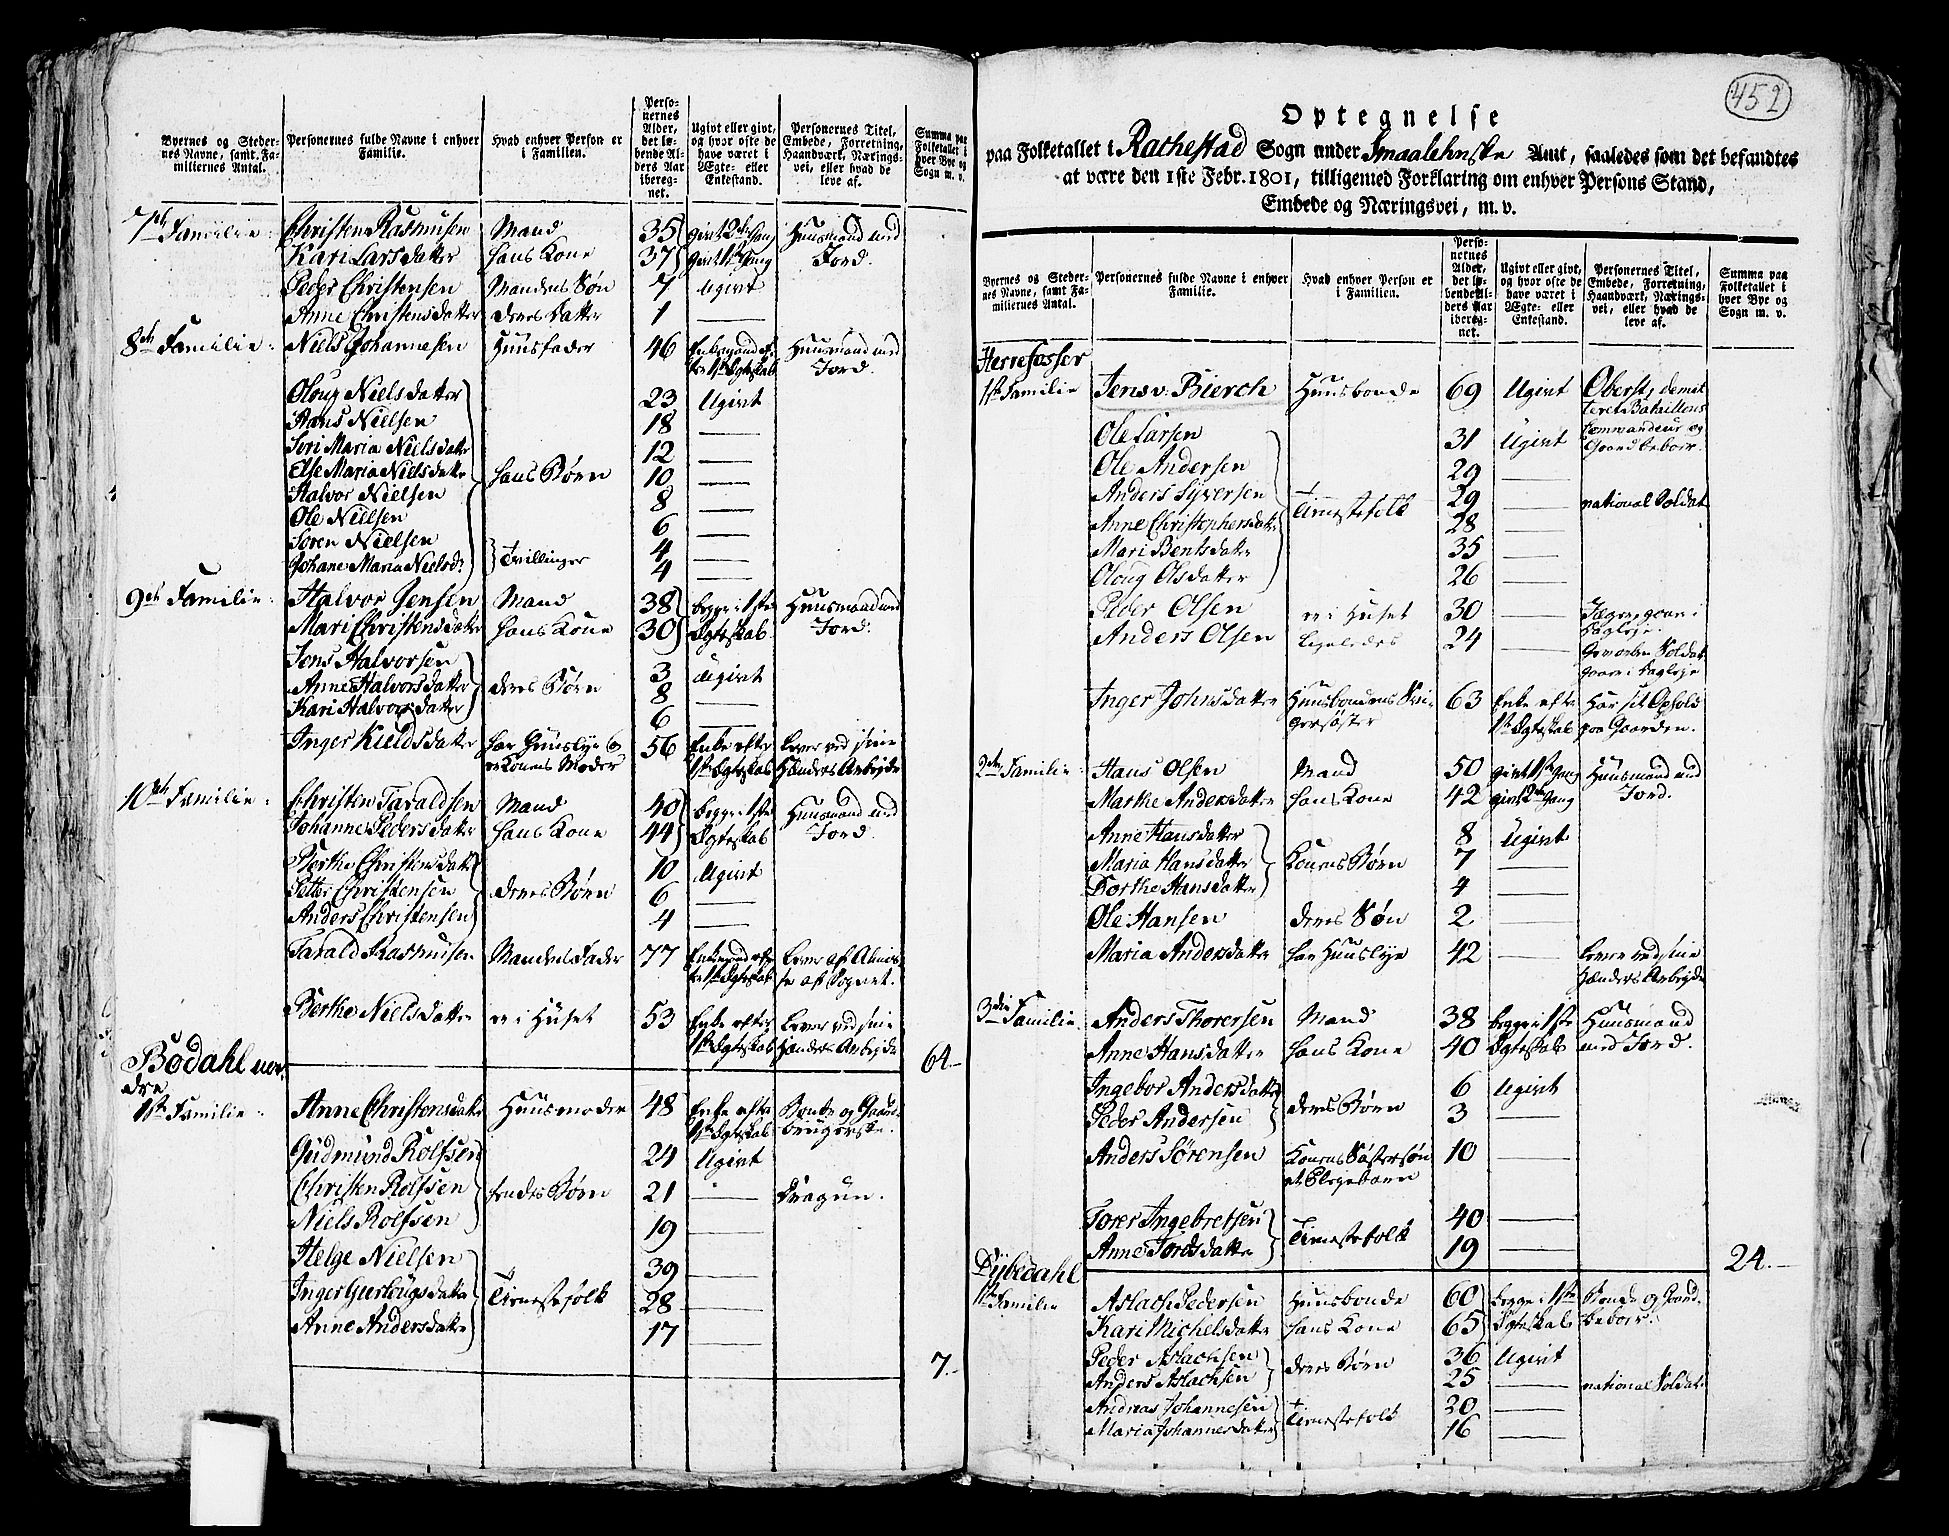 Byernes og Steder-
nes Navne, samt Fa-
miliernes Antal.
Personernes fulde Navne i enhver
Familie.
Hvad enhver Person er
i Familien.
Perso-
nernes
Alder,
det lø-
bende Al-
ders Aar
ibereg-
net.
Ugivt eller givt,
og hvor ofte de
have været i
Ægte- eller
Enkestand.
Personernes Titel,
Embede, Forretning,
Haandværk, Nærings-
vei, eller hvad de
leve af.
Summa paa
Folketallet i
hver Bye og
Sogn m. v.
7de Familie Christen Rasmusen Mand 35 givt 2den Gang Huusmand med
Kari Larsdatter hans Kone 37 givt 1ste Gang Jord.
Peder Christensen Mandens Søn 7 Ugivt
Anne Christensdatter deres Datter 1 —
8de Familie Niels Johannesen Huusfader 46 Enkemand ef- Huusmand med
ter 1ste Ægteskab Jord.
Oloug Nielsdatter 23 Ugivt
Hans Nielsen 18 —
Siri Maria Nielsdatter 12 —
Else Maria Nielsdatter hans Børn 10 —
Halvor Nielsen 8 —
Ole Nielsen 6 —
Søren Nielsen 4 —
Johane Maria Nielsd: Tvillinger 4 —
9de Familie Halvor Jensen Mand 38 begge i 1ste Huusmand med
Mari Christensdatter hans Kone 30 Ægteskab Jord.
Jens Halvorsen 3 Ugivt
Anne Halvorsdatter deres Børn 8 —
Kari Halvorsdatter 6 —
Inger Kieldsdatter har Huuslye og 56 Enke efter Lever ved sine
er Konens Moder 1ste Ægteskab Hænders Arbejde
10de Familie Christen Taraldsen Mand 40 begge i 1ste Huusmand med
Johanne Pedersdatter hans Kone 44 Ægteskab Jord
Berthe Christensdatter 10 Ugivt
Petter Christensen deres Børn 6 —
Anders Christensen 4 —
Tarald Rasmusen Mandens Fader 77 Enkemand ef- Lever af Almis-
ter 1ste Ægteskab se af Sognet.
Berthe Nielsdatter er i Huset 53 Enke efter Lever ved sine
1ste Ægteskab Hænders Arbejde
64.
Bødahl nor-
dre
1ste Familie Anne Christensdatter Huusmoder 48 Enke efter Bonde og Gaard-
1ste Ægteskab brugerske.
Gudmund Rolfsen 24 Ugivt
Christen Rolfsen Endes Børn 21 — Dragun.
Niels Rolfsen 19 —
Helge Nielsen 39 —
Inger Guelougsdatter Tienestefolk 28 —
Anne Andersdatter 17 —
7.
452
Optegnelse
paa Folketallet i Rathestad Sogn under Smaalehnske Amt, saaledes som det befandtes
at være den 1ste Febr. 1801, tilligemed Forklaring om enhver Persons Stand,
Embede og Næringsvei, m. v.
Byernes og Steder-
nes Navne, samt Fa-
miliernes Antal.
Personernes fulde Navne i enhver
Familie.
Hvad enhver Person er
i Familien.
Perso-
nernes
Alder,
det lø-
bende Al-
ders Aar
ibereg-
net.
Ugivt eller givt,
og hvor ofte de
have været i
Ægte- eller
Enkestand.
Personernes Titel,
Embede, Forretning,
Haandværk, Nærings-
vei, eller hvad de
leve af.
Summa paa
Folketallet i
hver Bye og
Sogn m. v.
Herrefosser
1ste Familie Jens v: Bierch Huusbonde 69 Ugivt Oberst, demit-
teret Bataillons
Ole Larsen 31 Ugivt Commandeur og
Gaardbeboer.
Ole Andersen 29 —
Anders Syversen Tienestefolk 29 — national Soldat
Anne Christophersdatter 28 —
Mari Bentsdatter 35 —
Oloug Olsdatter 26 —
Peder Olsen er i Huset 30 — Jæger, gaar i
Dagleje.
Anders Olsen Ligeledes 24 — Gevorben Soldat
gaaer i Dagleje
Inger Johnsdatter Huusbondens Svi- 63 Enke efter Har sit Ophold
gersøster 1ste Ægteskab paa Gaarden.
2den Familie Hans Olsen Mand 50 givt 1ste Gang Huusmand med
Marthe Andersdatter hans Kone 42 givt 2den Gang Jord.
Anne Hansdatter 8 Ugivt
Maria Hansdatter Konens Børn 7 —
Dorthe Hansdatter 4 —
Ole Hansen deres Søn 2 —
Maria Andersdatter har Huuslye 42 — Lever ved sine
Hænders Arbejde
3die Familie Anders Thorersen Mand 38 begge i 1ste Huusmand
Anne Hansdatter hans Kone 40 Ægteskab med Jord.
Ingebor Andersdatter 6 Ugivt
Peder Andersen deres Børn 3 —
Anders Sørensen Konens Søstersøn 10 —
et Plejebarn
Torer Ingebretsen 40 —
Anne Tordsdatter Tienestefolk 19 —
24.
Dybedahl
1ste Familie Aslach Pedersen Huusbonde 60 begge i 1ste Bonde og Gaard-
Kari Michelsdatter hans Kone 65 Ægteskab beboer.
Peder Aslachsen deres Børn 36 Ugivt
Anders Aslachsen 25 — national Soldat
Andreas Johannesen Tienestefolk 20 —
Maria Johannesdatter 16 —